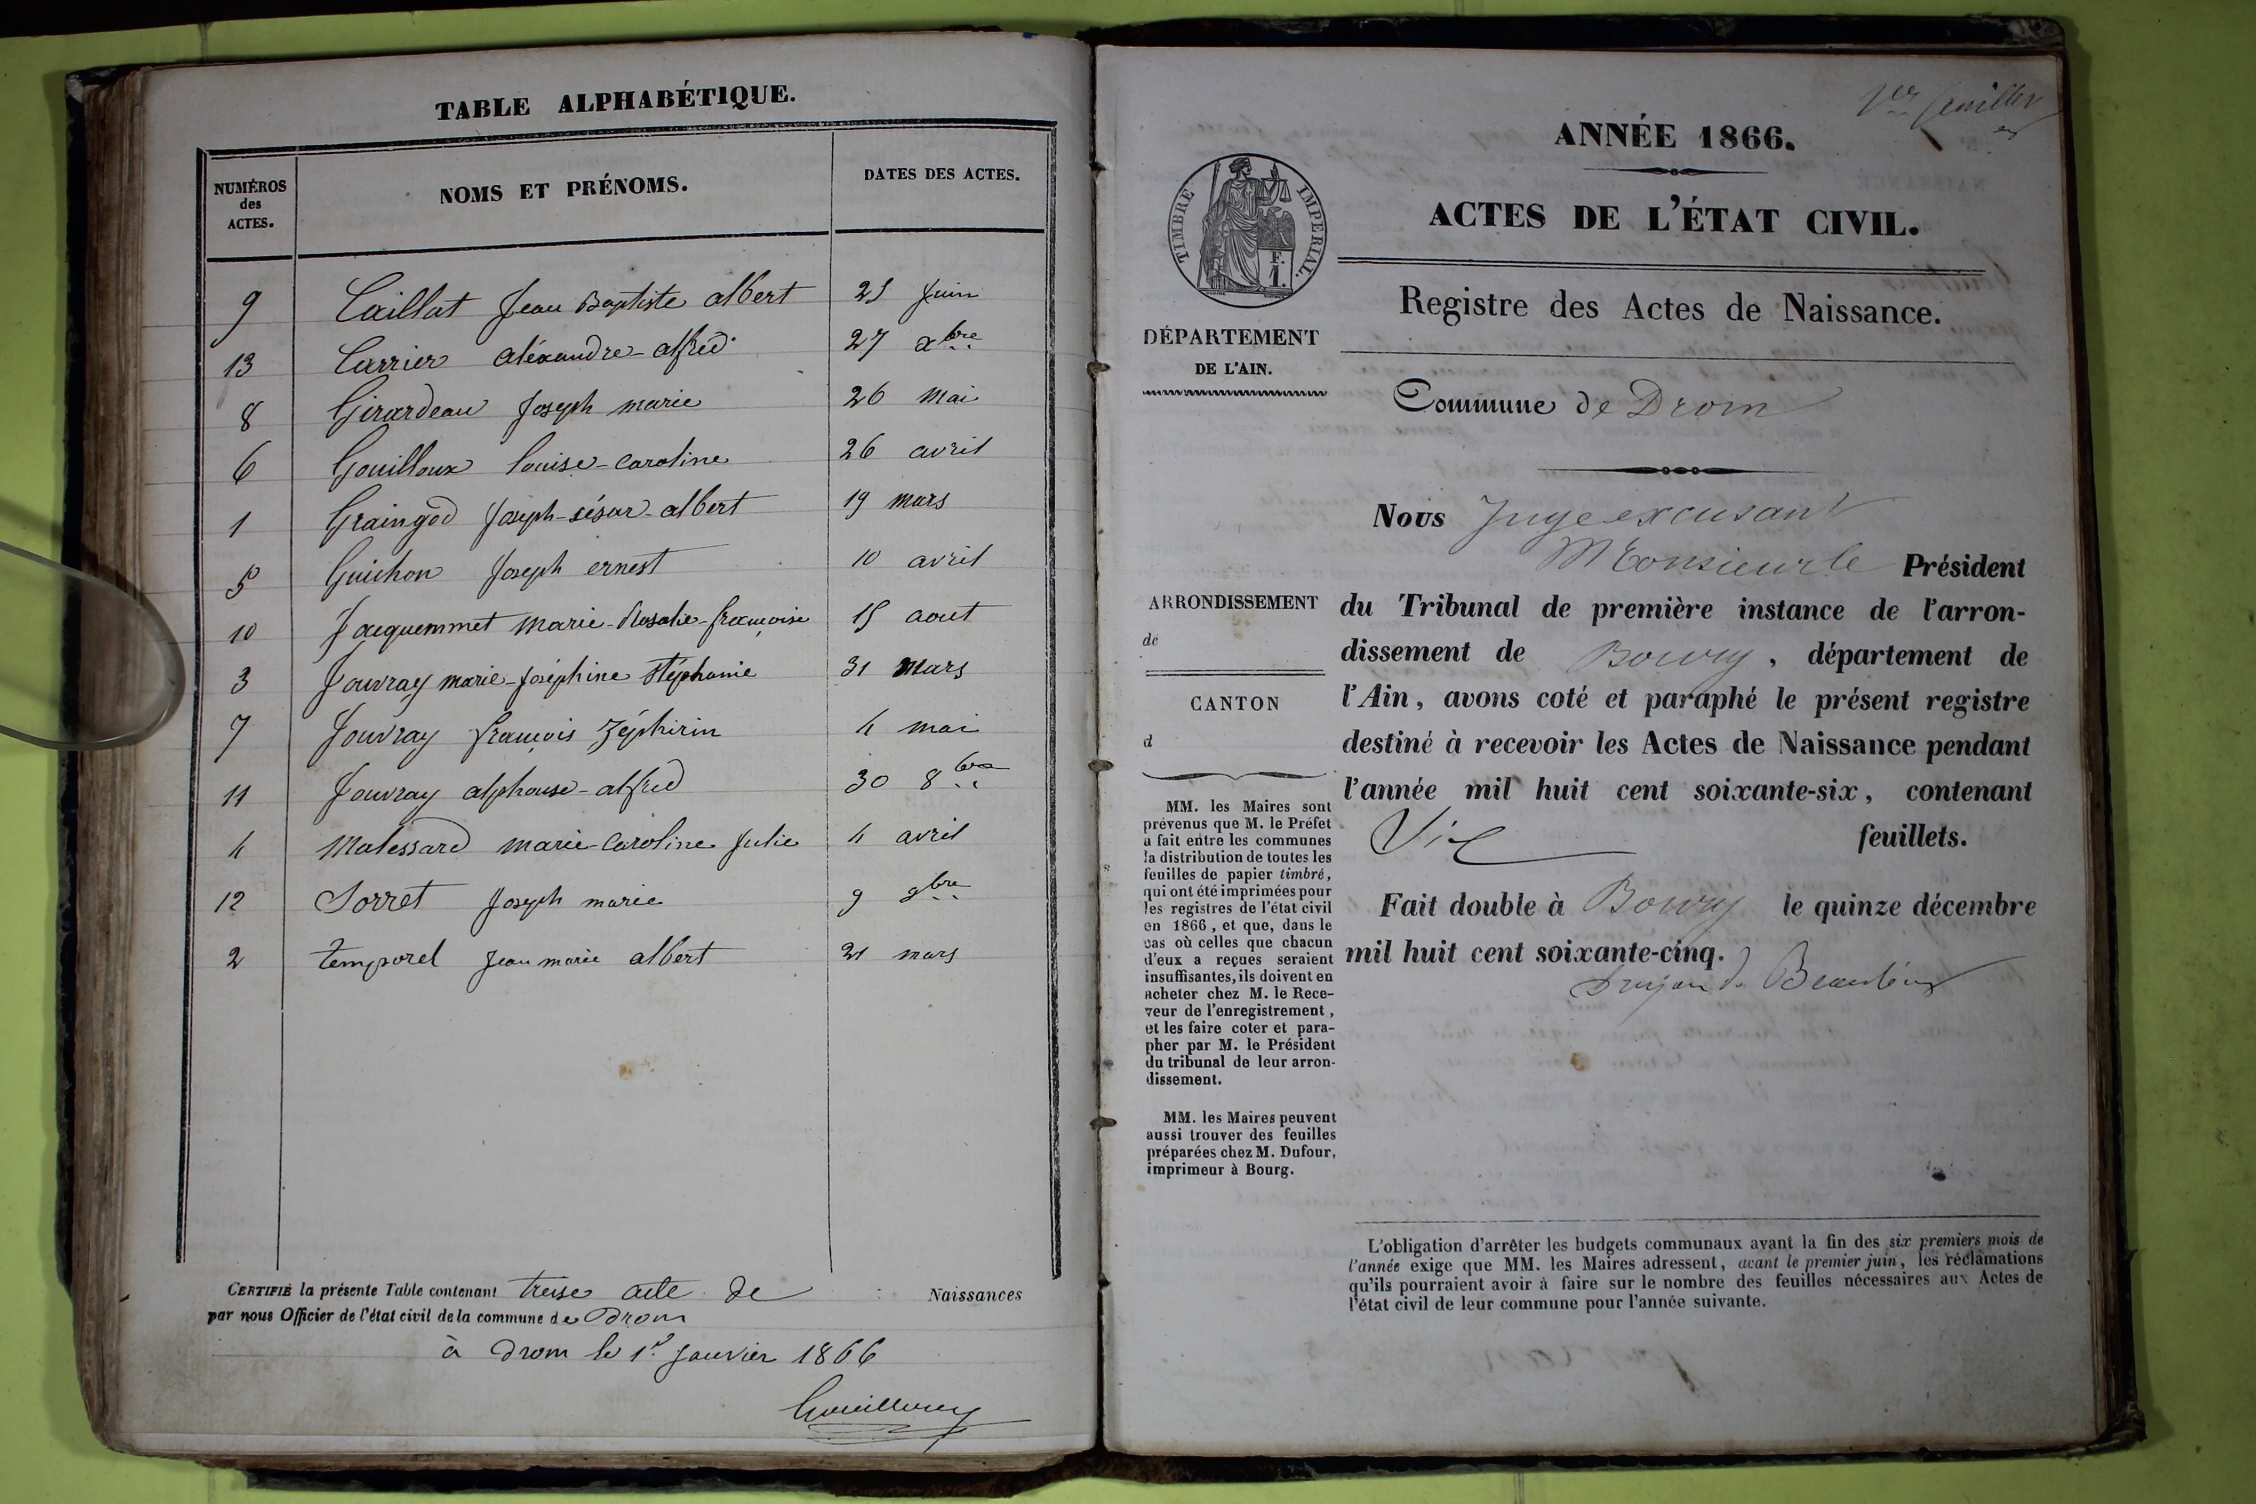 TABLE ALPHABÉTIQUE.
NUMÉROS des ACTES. NOMS ET PRÉNOMS. DATES DES ACTES.
9 Caillat Jean Baptiste albert 25 Juin
13 Carrier aléxandre-alfred 27 xbre
8 Girardeau Joseph marie 26 mai
6 Gouilloux louise-caroline 26 avril
1 Graingod Joseph-sésar-albert 19 mars
5 Guichon Joseph ernest 10 avril
10 Jacquemmet marie-Rosalie-françoise 15 aout
3 Jouvray marie-Joséphine Stéphanie 31 mars
7 Jouvray françois Zéphirin 4 mai
11 Jouvray alphonse-alfred 30 8bre
4 Malessard marie-caroline Julie 4 avril
12 Sorret Joseph marie 9 9bre
2 temporel Jean marie albert 21 mars
CERTIFIÉ la présente Table contenant treise acte de Naissances
par nous Officier de l'état civil de la commune de Drom
à Drom le 1er Janvier 1866
Gouilloux
1er feuillet
ANNÉE 1866.
ACTES DE L'ÉTAT CIVIL.
TIMBRE IMPÉRIAL.
F. 1.
Registre des Actes de Naissance.
DÉPARTEMENT
DE L'AIN.
Commune de Drom
Nous Juge excusant
Monsieur le Président
du Tribunal de première instance de l'arron-
dissement de Bourg, département de
l'Ain, avons coté et paraphé le présent registre
destiné à recevoir les Actes de Naissance pendant
l'année mil huit cent soixante-six, contenant
Six feuillets.
Fait double à Bourg le quinze décembre
mil huit cent soixante-cinq.
ARRONDISSEMENT
de
CANTON
d
MM. les Maires sont
prévenus que M. le Préfet
a fait entre les communes
la distribution de toutes les
feuilles de papier timbré,
qui ont été imprimées pour
les registres de l'état civil
en 1866, et que, dans le
cas où celles que chacun
d'eux a reçues seraient
insuffisantes, ils doivent en
acheter chez M. le Rece-
veur de l'enregistrement,
et les faire coter et para-
pher par M. le Président
du tribunal de leur arron-
dissement.
MM. les Maires peuvent
aussi trouver des feuilles
préparées chez M. Dufour,
imprimeur à Bourg.
L'obligation d'arrêter les budgets communaux avant la fin des six premiers mois de
l'année exige que MM. les Maires adressent, avant le premier juin, les réclamations
qu'ils pourraient avoir à faire sur le nombre des feuilles nécessaires aux Actes de
l'état civil de leur commune pour l'année suivante.